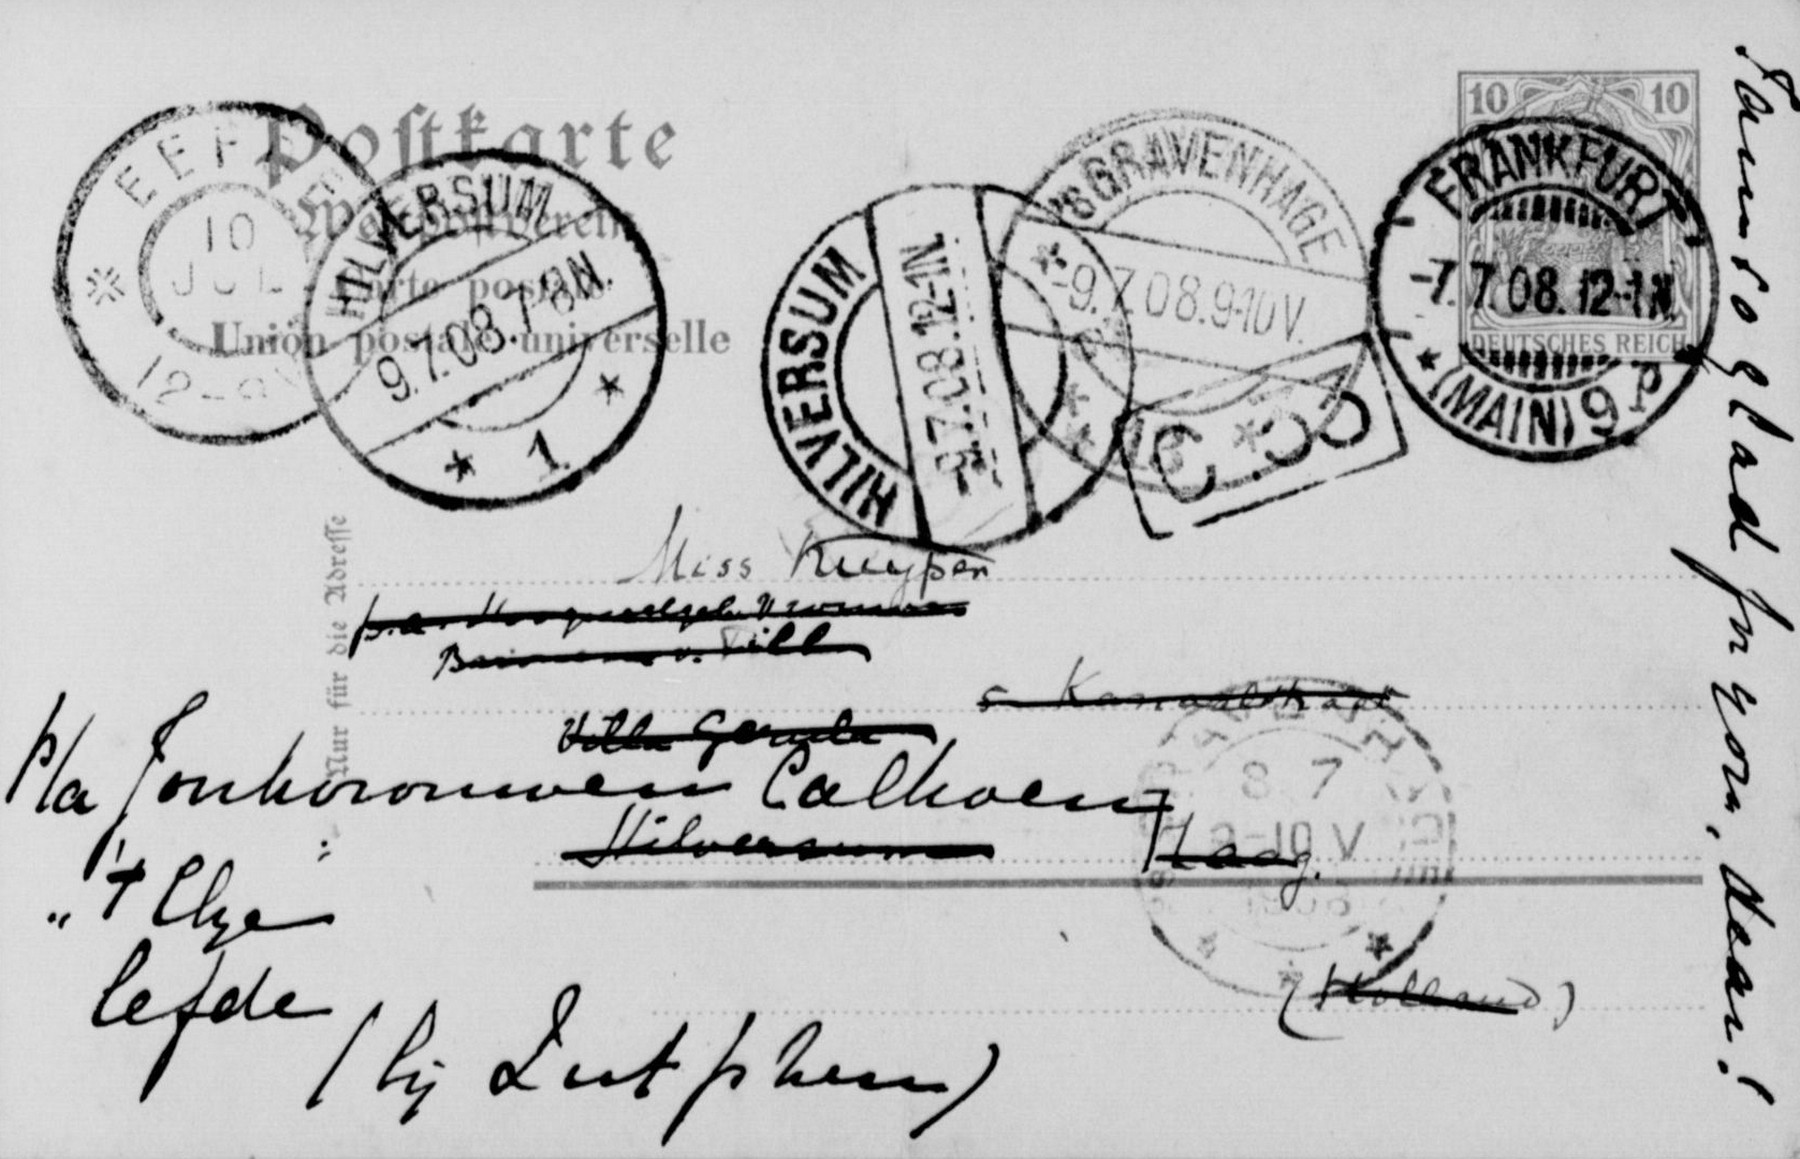 Postkarte
Weltpostverein
Carte postale
Union postale universelle
Nur für die Adresse
10 10
DEUTSCHES REICH
FRANKFURT
-7.7.08.12-1N.
* (MAIN) 9 P
'sGRAVENHAGE
*-9.7.08.9-10V.
HILVERSUM
-8.7.08.12-1N.
HILVERSUM
9.7.08.7-8N.
* 1 *
EEF
10
JUL
12-8
C. 33
8 7
9-10 V
1908
Miss Kuyper
p.a.
Villa Gerula
Kanaalstraat
p/a Jonkvrouwen Calkoen
Hilversum
Haag.
"'t Elze
Eefde
(bij Zutphen)
(Holland)
I am so glad for you, dear!